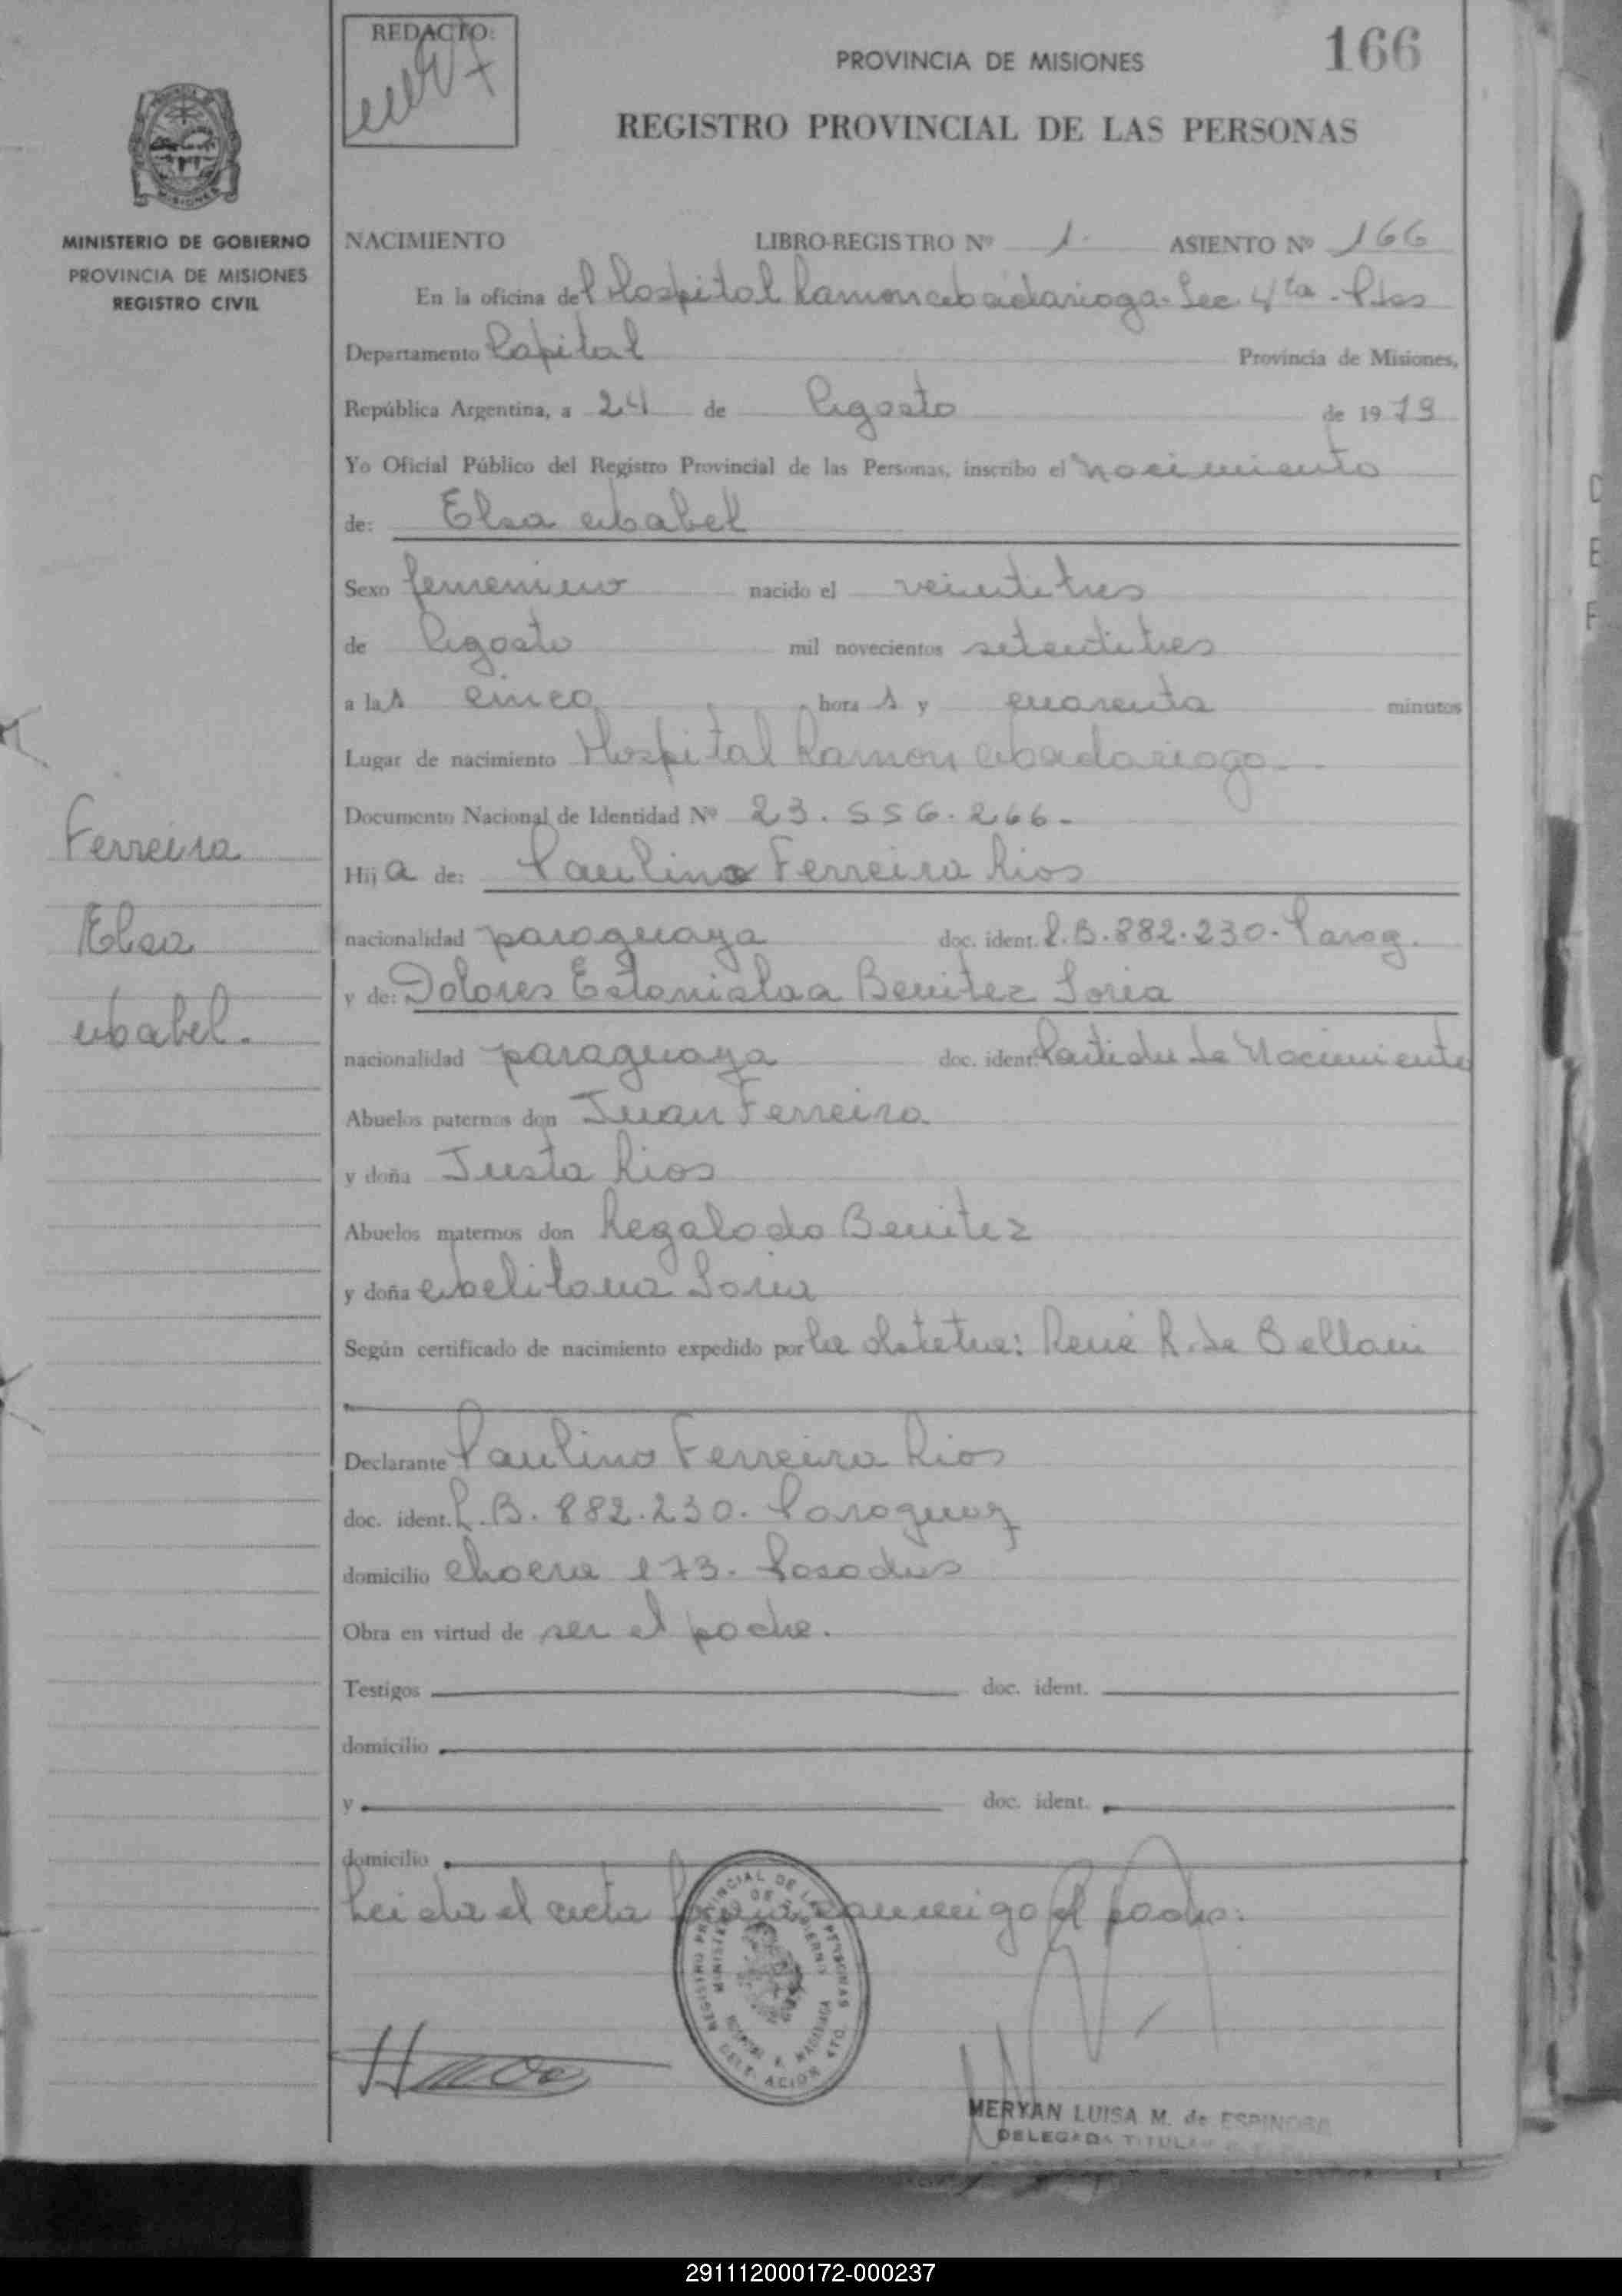 REDACTO:
166
PROVINCIA DE MISIONES
REGISTRO PROVINCIAL DE LAS PERSONAS
MISIONES
MINISTERIO DE GOBIERNO
PROVINCIA DE MISIONES
REGISTRO CIVIL
Ferreira
Elsa
Mabel.
NACIMIENTO LIBRO-REGISTRO Nº 1. ASIENTO Nº 166
En la oficina del Hospital Ramon Madariaga. Sec. 4ta. Pdas
Departamento Capital Provincia de Misiones,
República Argentina, a 24 de Agosto de 1973
Yo Oficial Público del Registro Provincial de las Personas, inscribo el nacimiento
de: Elsa Mabel
Sexo femenino nacido el veintitres
de Agosto mil novecientos setentitres
a las cinco hora s y cuarenta minutos
Lugar de nacimiento Hospital Ramon Madariaga.
Documento Nacional de Identidad Nº 23.556.266.
Hija de: Paulino Ferreira Rios
nacionalidad paraguaya doc. ident. R.B.882.230. Parag.
y de: Dolores Estanislaa Benitez Soria
nacionalidad paraguaya doc. ident. Partida de Nacimiento
Abuelos paternos don Juan Ferreira
y doña Justa Rios
Abuelos maternos don Regalado Benitez
y doña Melitona Soria
Según certificado de nacimiento expedido por la obstetra: René R. de Bellani
Declarante Paulino Ferreira Rios
doc. ident. R.B. 882.230. Paraguay
domicilio Chacra 173. Posadas
Obra en virtud de ser el padre.
Testigos doc. ident.
domicilio
y doc. ident.
domicilio
Leida el acta firma conmigo el padre.
REGISTRO PROVINCIAL DE LAS PERSONAS
MINISTERIO DE GOBIERNO
DELEGACION 4TO.
MERYAN LUISA M. de ESPINOSA
DELEGADA TITULAR
291112000172-000237